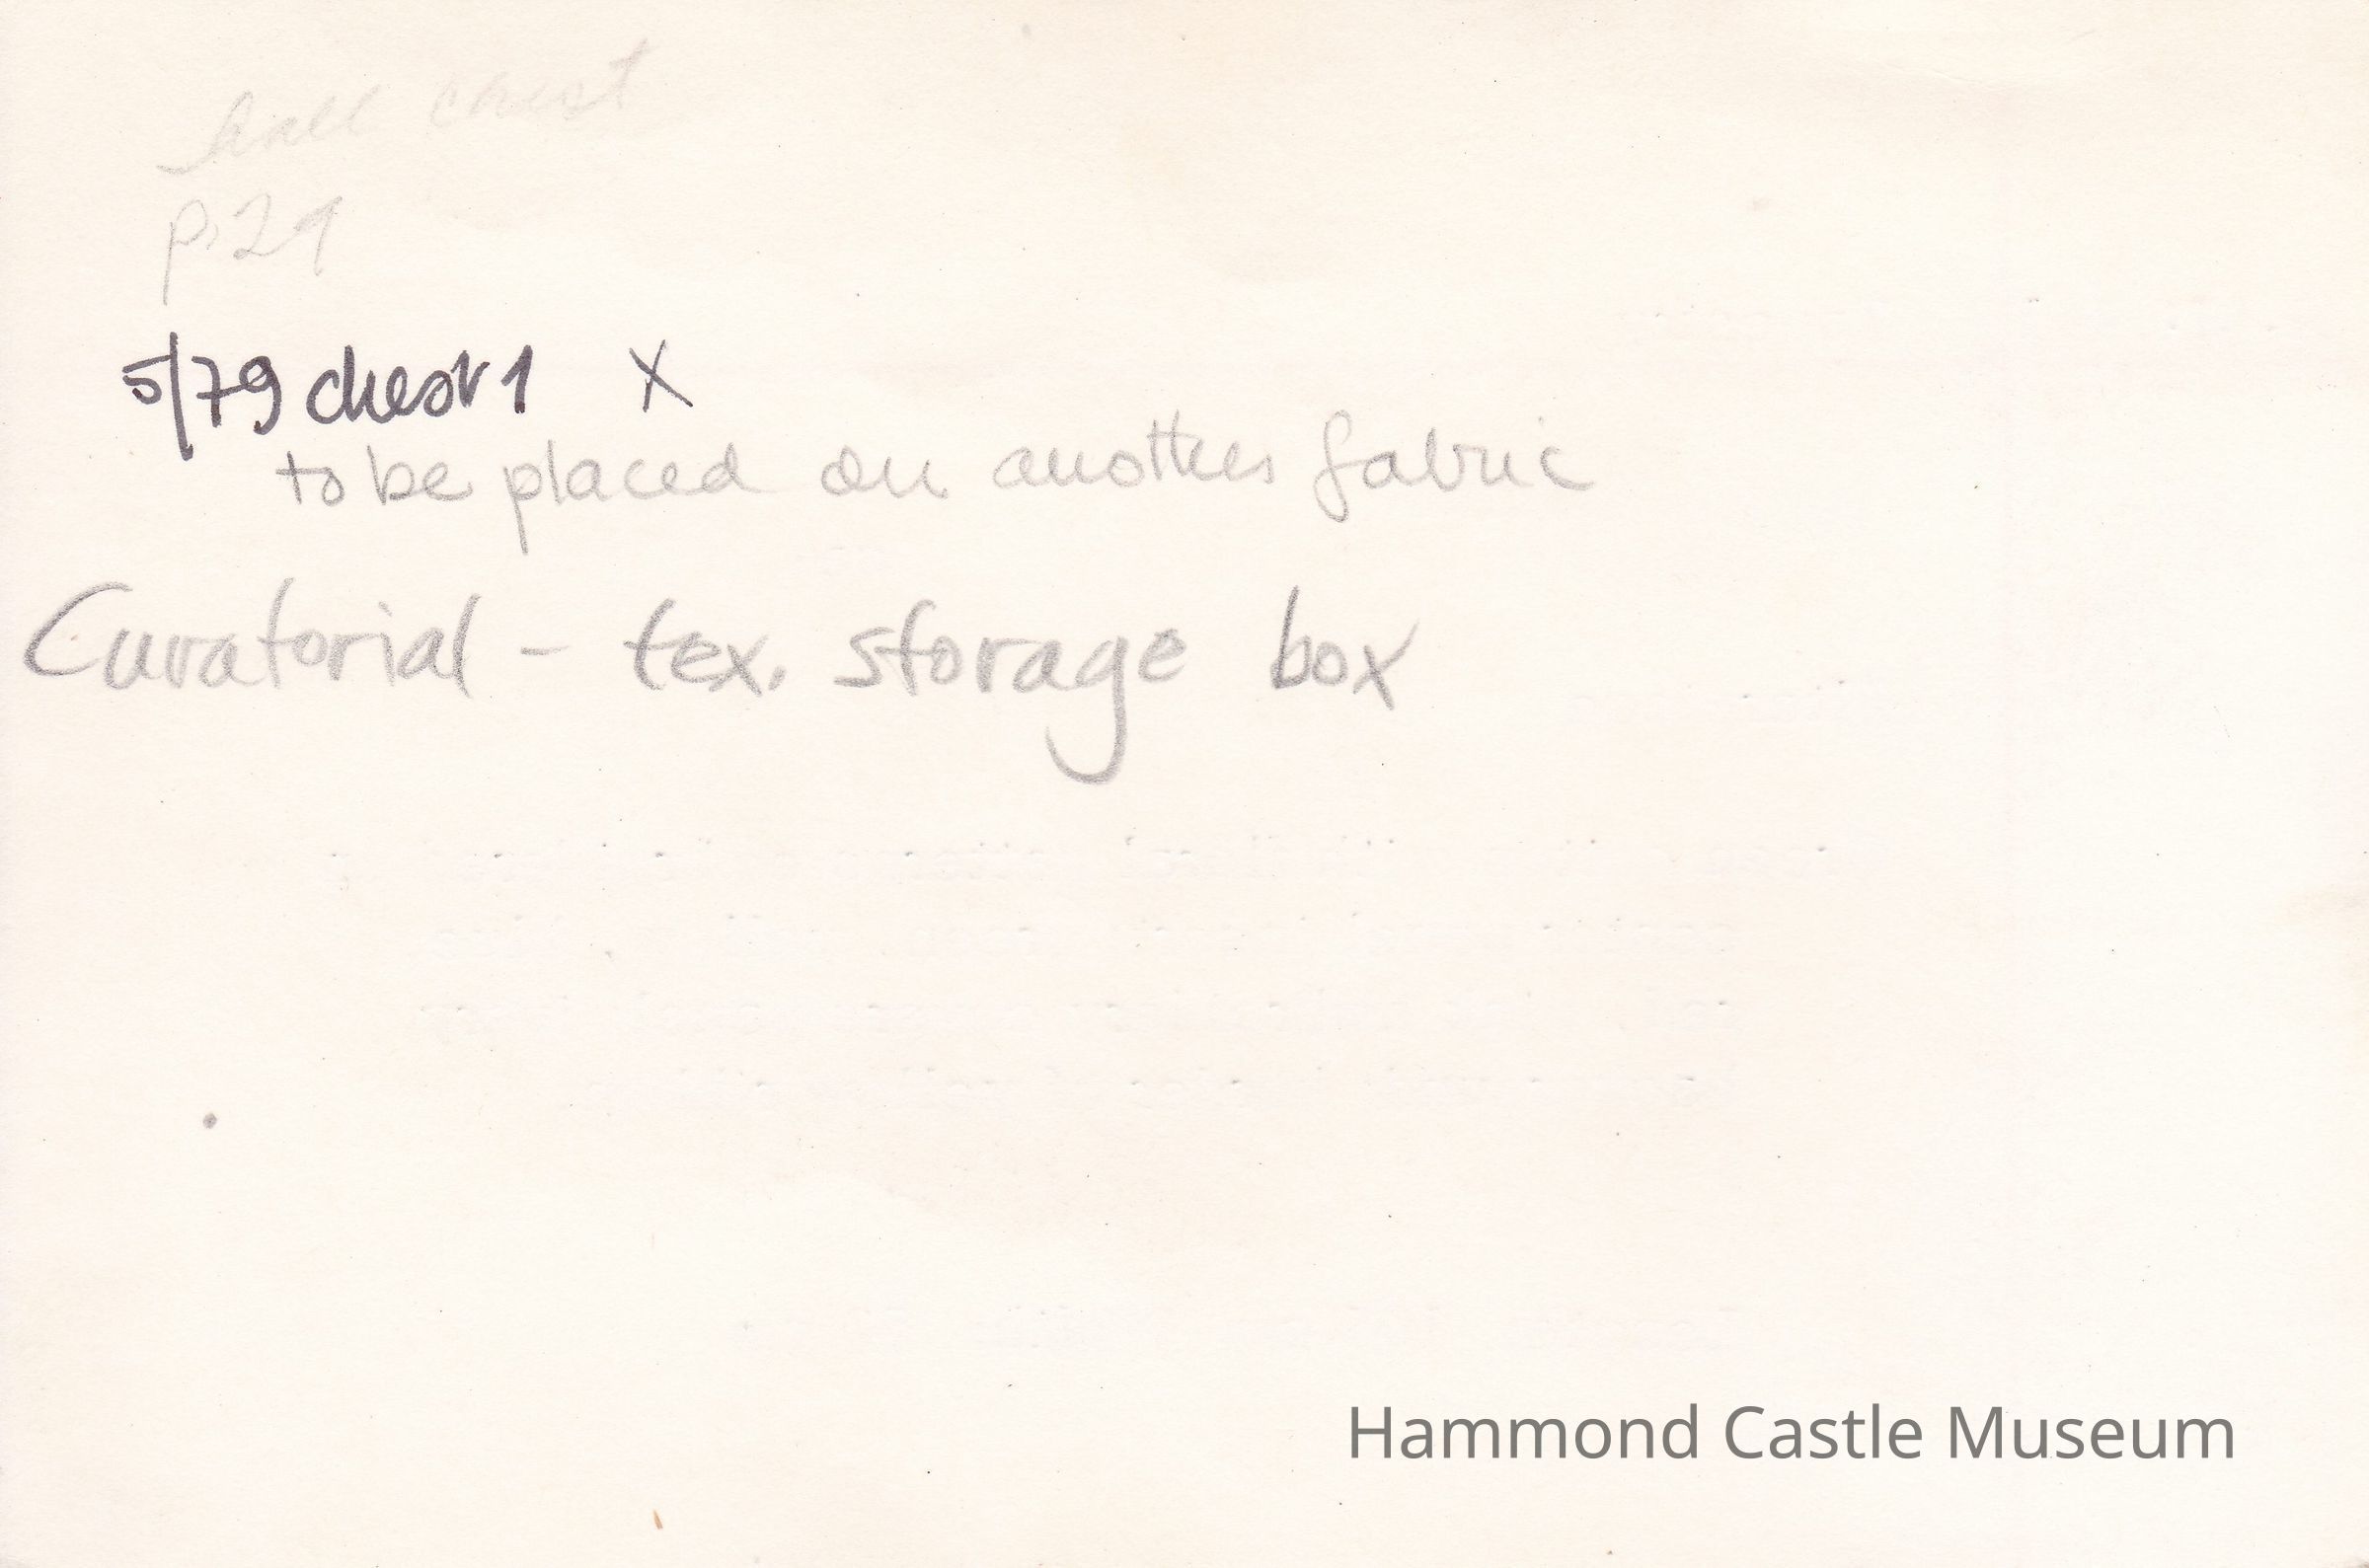 hall chest
p. 29
5/79 chest 1 X
to be placed on another fabric
Curatorial - tex. storage box
Hammond Castle Museum